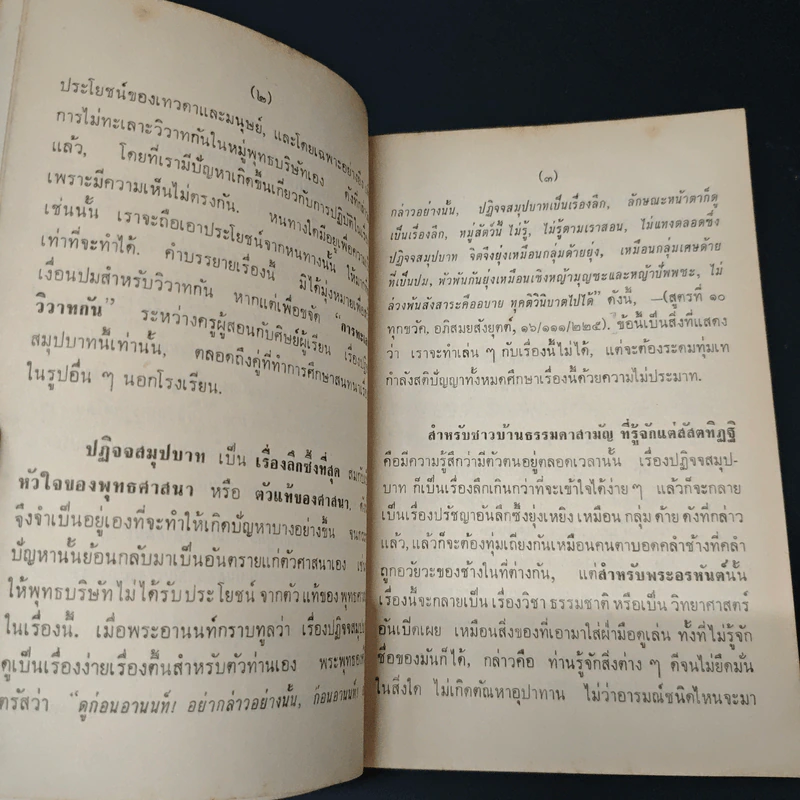 (๒)
ประโยชน์ของเทวดาและมนุษย์, และโดยเฉพาะอย่างยิ่ง
การไม่ทะเลาะวิวาทกันในหมู่พุทธบริษัทเอง ดังที่กล่าว
แล้ว, โดยที่เรามีปัญหาเกิดขึ้นเกี่ยวกับการปฏิบัติในเรื่อง
เพราะมีความเห็นไม่ตรงกัน. หนทางใดมีอยู่เพื่อความ
เช่นนั้น เราจะถือเอาประโยชน์จากหนทางนั้น ให้มาก
เท่าที่จะทำได้. คำบรรยายเรื่องนี้ มิได้มุ่งหมาย
เงื่อนปมสำหรับวิวาทกัน หากแต่เพื่อขจัด "การทะเลาะ
วิวาทกัน" ระหว่างครูผู้สอนกับศิษย์ผู้เรียน เรื่อง
สมุปบาทนี้เท่านั้น, ตลอดถึงคู่ที่ทำการศึกษาสนทนา
ในรูปอื่น ๆ นอกโรงเรียน.
ปฏิจจสมุปบาท เป็น เรื่องลึกซึ้งที่สุด สมกับ
หัวใจของพุทธศาสนา หรือ ตัวแท้ของศาสนา.
จึงจำเป็นอยู่เองที่จะทำให้เกิดปัญหาบางอย่างขึ้น จน
ปัญหานั้นย้อนกลับมาเป็นอันตรายแก่ตัวศาสนาเอง
ให้พุทธบริษัทไม่ได้รับประโยชน์ จากตัวแท้ของพุทธ
ในเรื่องนี้. เมื่อพระอานนท์กราบทูลว่า เรื่องปฏิจจสมุป
ดูเป็นเรื่องง่ายเรื่องตื้นสำหรับตัวท่านเอง พระพุทธ
ตรัสว่า "ดูก่อนอานนท์! อย่ากล่าวอย่างนั้น, ก่อนอานนท์!
(๓)
กล่าวอย่างนั้น, ปฏิจจสมุปบาทเป็นเรื่องลึก, ลักษณะหน้าตาก็ดู
เป็นเรื่องลึก, หมู่สัตว์นี้ ไม่รู้, ไม่รู้ตามเราสอน, ไม่แทงตลอดซึ่ง
ปฏิจจสมุปบาท จิตจึงยุ่งเหมือนกลุ่มด้ายยุ่ง, เหมือนกลุ่มเศษด้าย
ที่เป็นปม, พัวพันกันยุ่งเหมือนเซิงหญ้ามุญชะและหญ้าปัพพชะ, ไม่
ล่วงพ้นสังสาระคืออบาย ทุคติวินิบาตไปได้" ดังนี้, —(สูตรที่ ๑๐
ทุกขวัค. อภิสมยสังยุตต์, ๑๖/๑๑๑/๒๒๕). ข้อนี้เป็นสิ่งที่แสดง
ว่า เราจะทำเล่น ๆ กับเรื่องนี้ไม่ได้, แต่จะต้องระดมทุ่มเท
กำลังสติปัญญาทั้งหมดศึกษาเรื่องนี้ด้วยความไม่ประมาท.
สำหรับชาวบ้านธรรมดาสามัญ ที่รู้จักแต่สัสสตทิฏฐิ
คือมีความรู้สึกว่ามีตัวตนอยู่ตลอดเวลานั้น, เรื่องปฏิจจสมุป-
บาท ก็เป็นเรื่องลึกเกินกว่าที่จะเข้าใจได้ง่าย ๆ แล้วก็จะกลาย
เป็นเรื่องปรัชญาอันลึกซึ้งยุ่งเหยิง เหมือน กลุ่ม ด้าย ดังที่กล่าว
แล้ว, แล้วก็จะต้องทุ่มเถียงกันเหมือนคนตาบอดคลำช้างที่คลำ
ถูกอวัยวะของช้างในที่ต่างกัน, แต่สำหรับพระอรหันต์นั้น
เรื่องนี้จะกลายเป็น เรื่องวิชา ธรรมชาติ หรือเป็น วิทยาศาสตร์
อันเปิดเผย เหมือนสิ่งของที่เอามาใส่ฝ่ามือดูเล่น ทั้งที่ไม่รู้จัก
ชื่อของมันก็ได้, กล่าวคือ ท่านรู้จักสิ่งต่าง ๆ ดีจนไม่ยึดมั่น
ในสิ่งใด ไม่เกิดตัณหาอุปาทาน ไม่ว่าอารมณ์ชนิดไหนจะมา